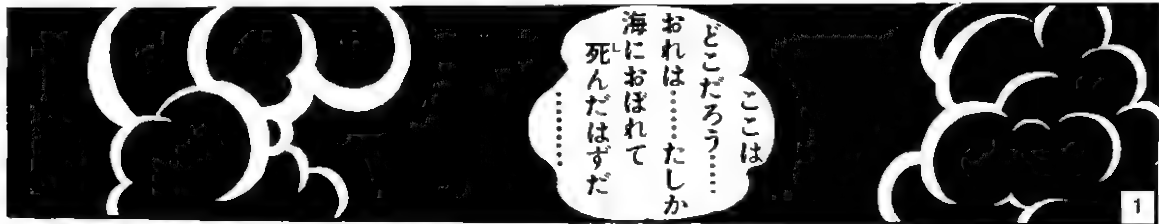 ここは
どこだろう……
おれは……たしか
海におぼれて
死んだはずだ
………
1